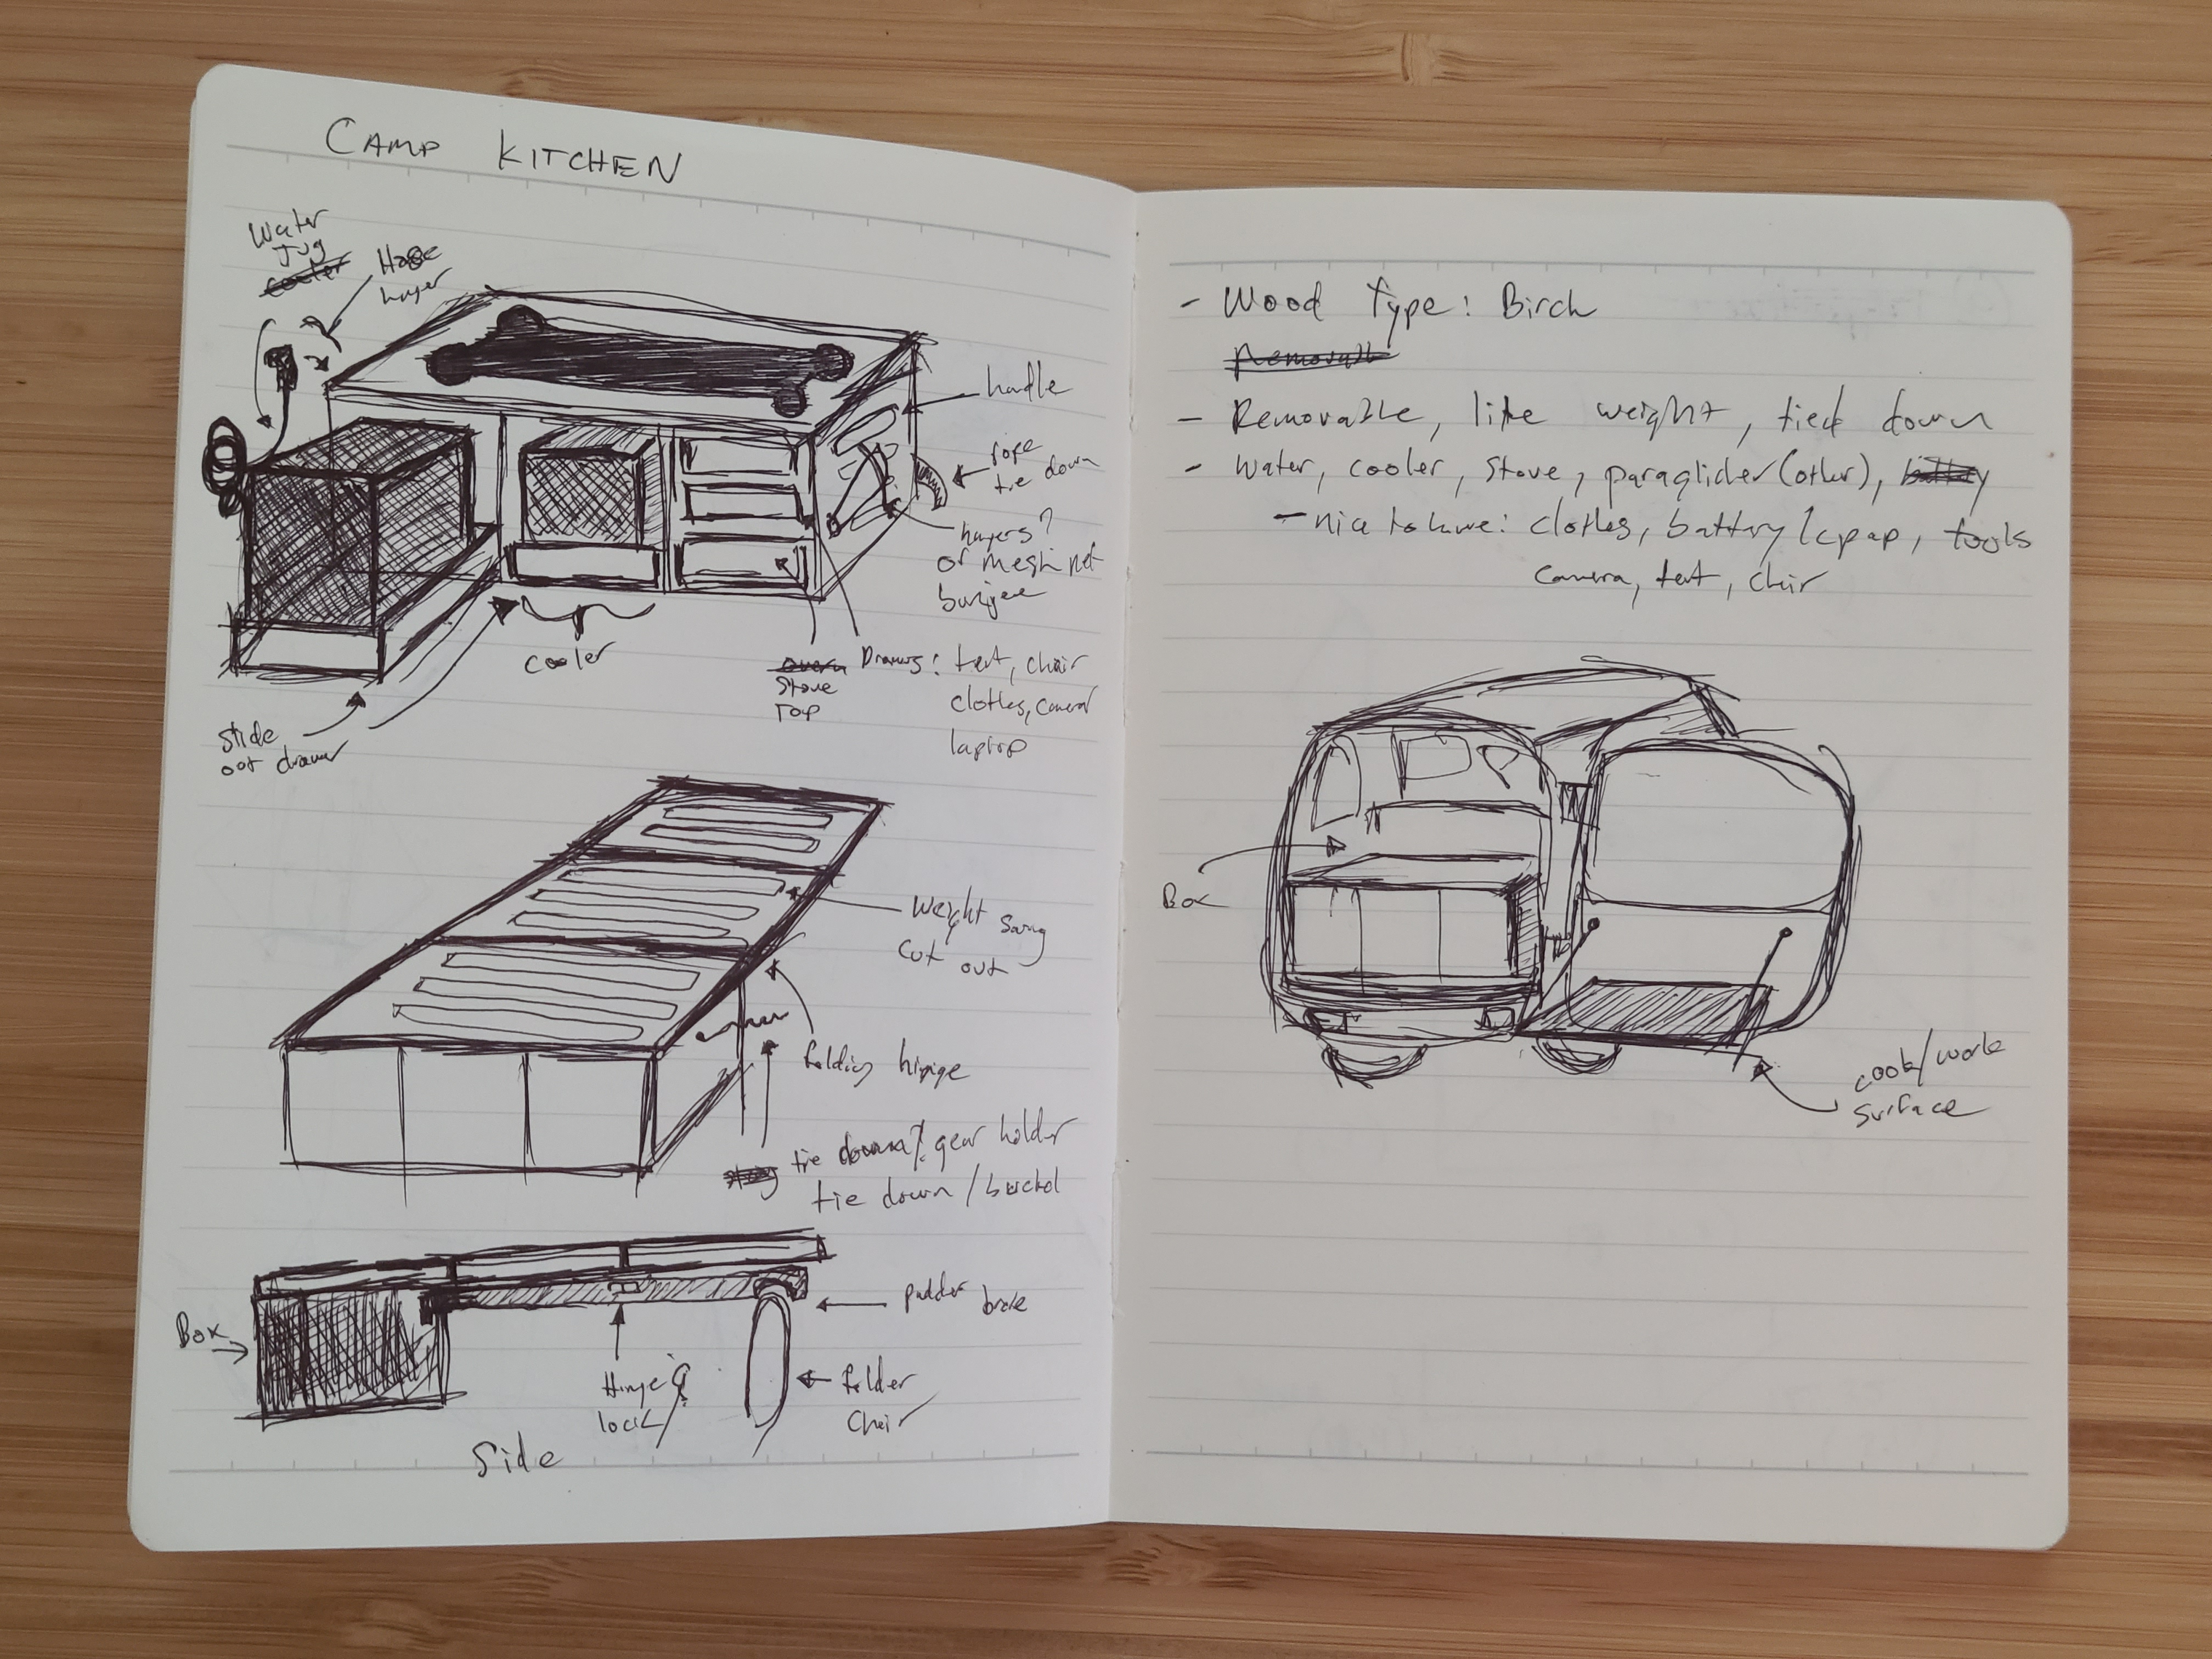 CAMP KITCHEN
Water
Jug
cooler
Hose
hager
handle
rope
tie down
hagers?
or mesh net
bungee
cooler
Draws: tent, chair
clothes, camera
laptop
oven
Stove
Top
slide
out drawer
weight savng
cut out
folding hinge
tie down? gear holder
tie down / bucket
Box
Hinge
lock?
brake
folder
chair
Side
- Wood Type: Birch
Removable
- Removable, lite weight, tied down
- Water, cooler, stove, paraglider (other), battery
- nice to have: clothes, battery/cpap, tools
camera, tent, chair
Box
cook/work
surface